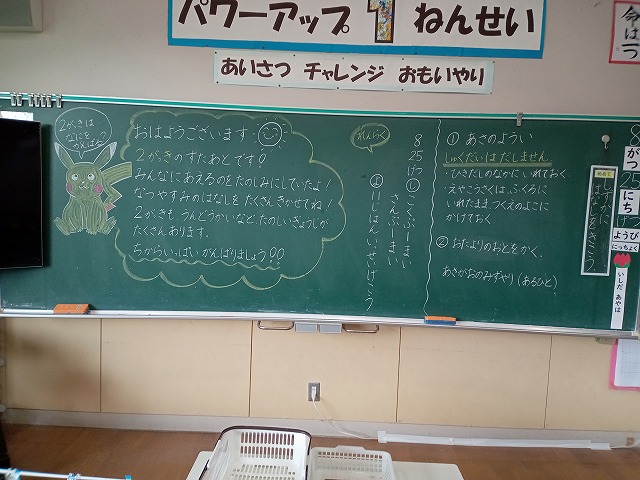 パワーアップ 1 ねんせい
あいさつ チャレンジ おもいやり
2がっきは
なにを
がんばる?
おはようございます
2がっきのすたあとです!
みんなにあえるのをたのしみにしていたよ!
なつやすみのはなしを たくさんきかせてね!
2がっきも うんどうかいなど、たのしいぎょうじが
たくさんあります。
ちからいっぱい がんばりましょう!!
れんらく
8
25
げつ
① あさのようい
しゅくだいは だしません。
・ひきだしのなかに いれておく。
・えやこうさくは、ふくろに
いれたまま、つくえのよこに
かけておく。
② おたよりのおとをかく。
あさがおのみずやり(あるひと)
めあて
8
がつ
25
にち
げつ
ようび
にっちょく
いしだ あやは